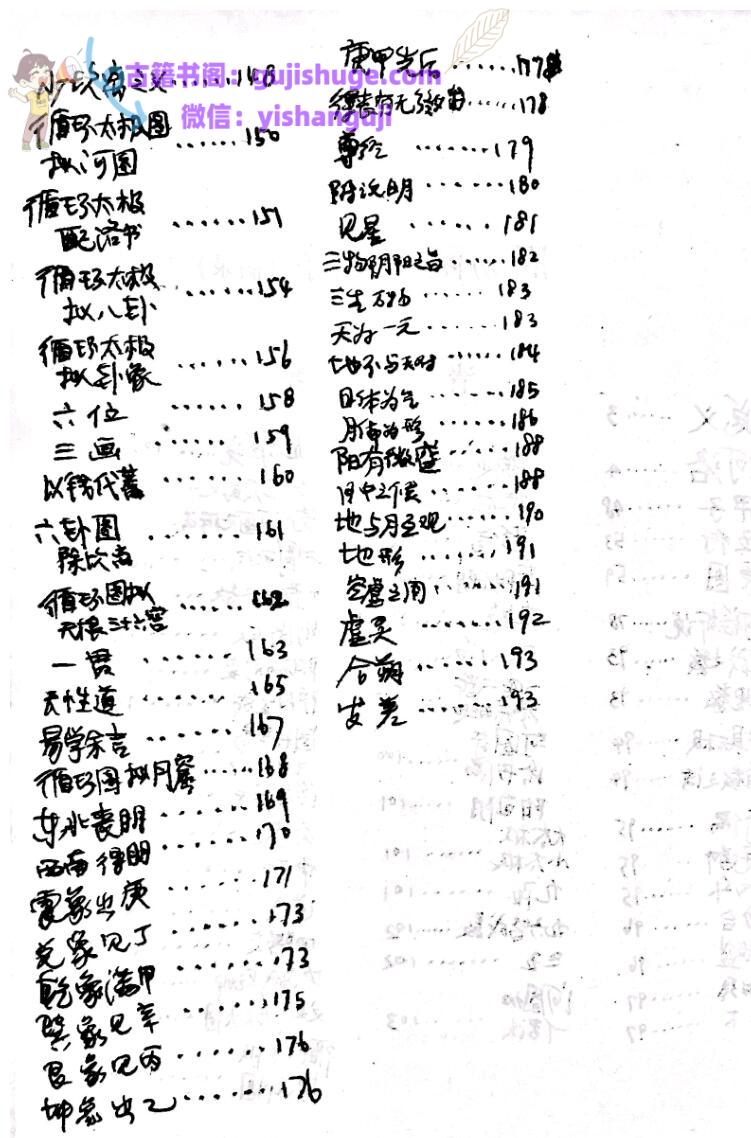 古籍书阁：gujishuge.com
微信：yishanguji
之义......148
循环太极图
拟河图......150
循环太极
配洛书......151
循环太极
拟八卦......154
循环太极
拟卦象......156
六位......158
三画......159
以钱代蓍......160
六卦图......161
循环图拟
天根三十六宫......162
一贯......163
天性道......165
易学余言......167
循环图拟月窟......168
东北丧朋......169
西南得朋......170
震象出庚......171
兑象见丁......173
乾象满甲......173
巽象见辛......175
艮象见丙......176
坤象出乙......176
庚甲先后......177
178
尊经......179
附说明......180
见星......181
三物阴阳之旨......182
三生万物......183
天为一元......183
地不与天对......184
日体为气......185
月体为形......186
阳有微......188
月中之......188
地与月互观......190
地形......191
空虚之用......191
虚灵......192
合朔......193
岁差......193